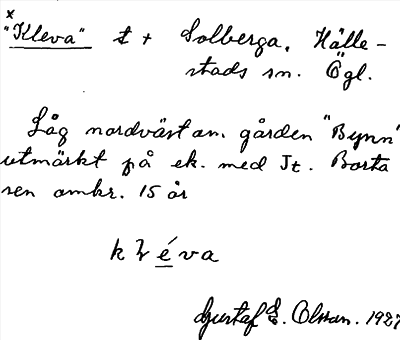 x
"Kleva" t + Solberga, Hälle-
stads sn. Ögl.
Låg nordväst om gården "Bynn"
utmärkt på ek. med Jt. Borta
sen omkr. 15 år
k léva
Gustaf E. Olsson. 1927